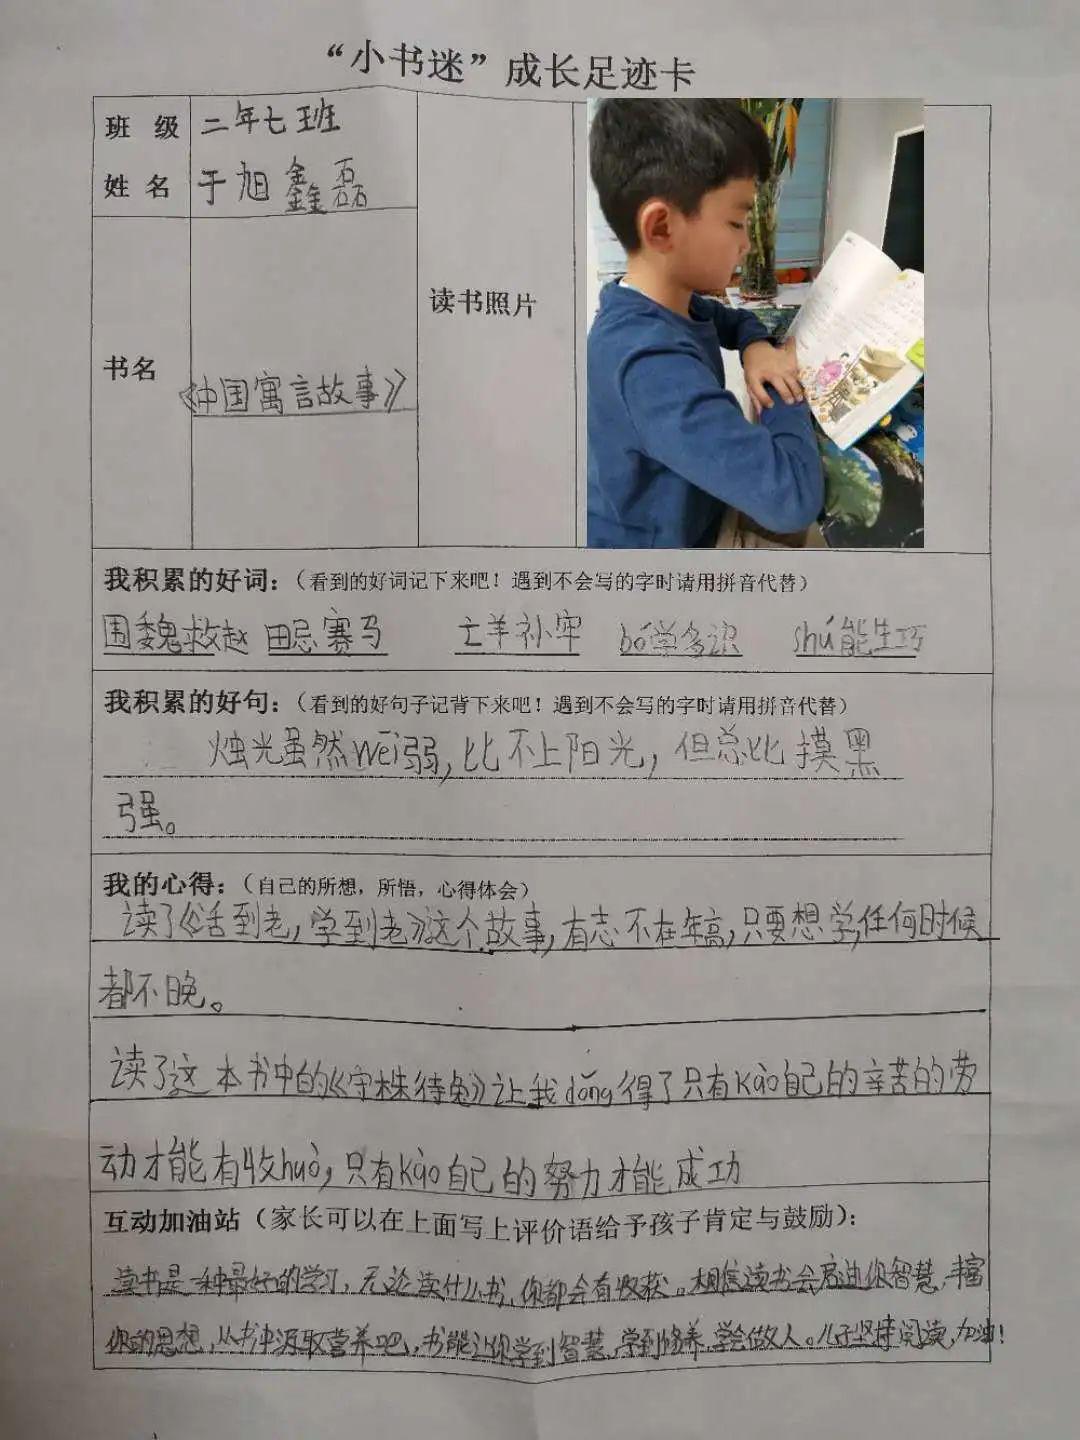 “小书迷”成长足迹卡
班 级 二年七班
姓 名 于旭鑫磊
书名 《中国寓言故事》
读书照片
我积累的好词：（看到的好词记下来吧！遇到不会写的字时请用拼音代替）
围魏救赵 田忌赛马 亡羊补牢 bó学多识 shú能生巧
我积累的好句：（看到的好句子记背下来吧！遇到不会写的字时请用拼音代替）
烛光虽然wēi弱，比不上阳光，但总比摸黑
强。
我的心得：（自己的所想，所悟，心得体会）
读了《活到老，学到老》这个故事，有志不在年高，只要想学，任何时候
都不晚。
读了这本书中的《守株待兔》让我dǒng得了只有kào自己的辛苦的劳
动才能有收huò，只有kào自己的努力才能成功
互动加油站（家长可以在上面写上评价语给予孩子肯定与鼓励）：
读书是一种最好的学习，无论读什么书，你都会有收获。相信读书会启迪你智慧，丰富
你的思想，从书中汲取营养吧，书能让你学到智慧，学到修养，学会做人。儿子坚持阅读，加油！